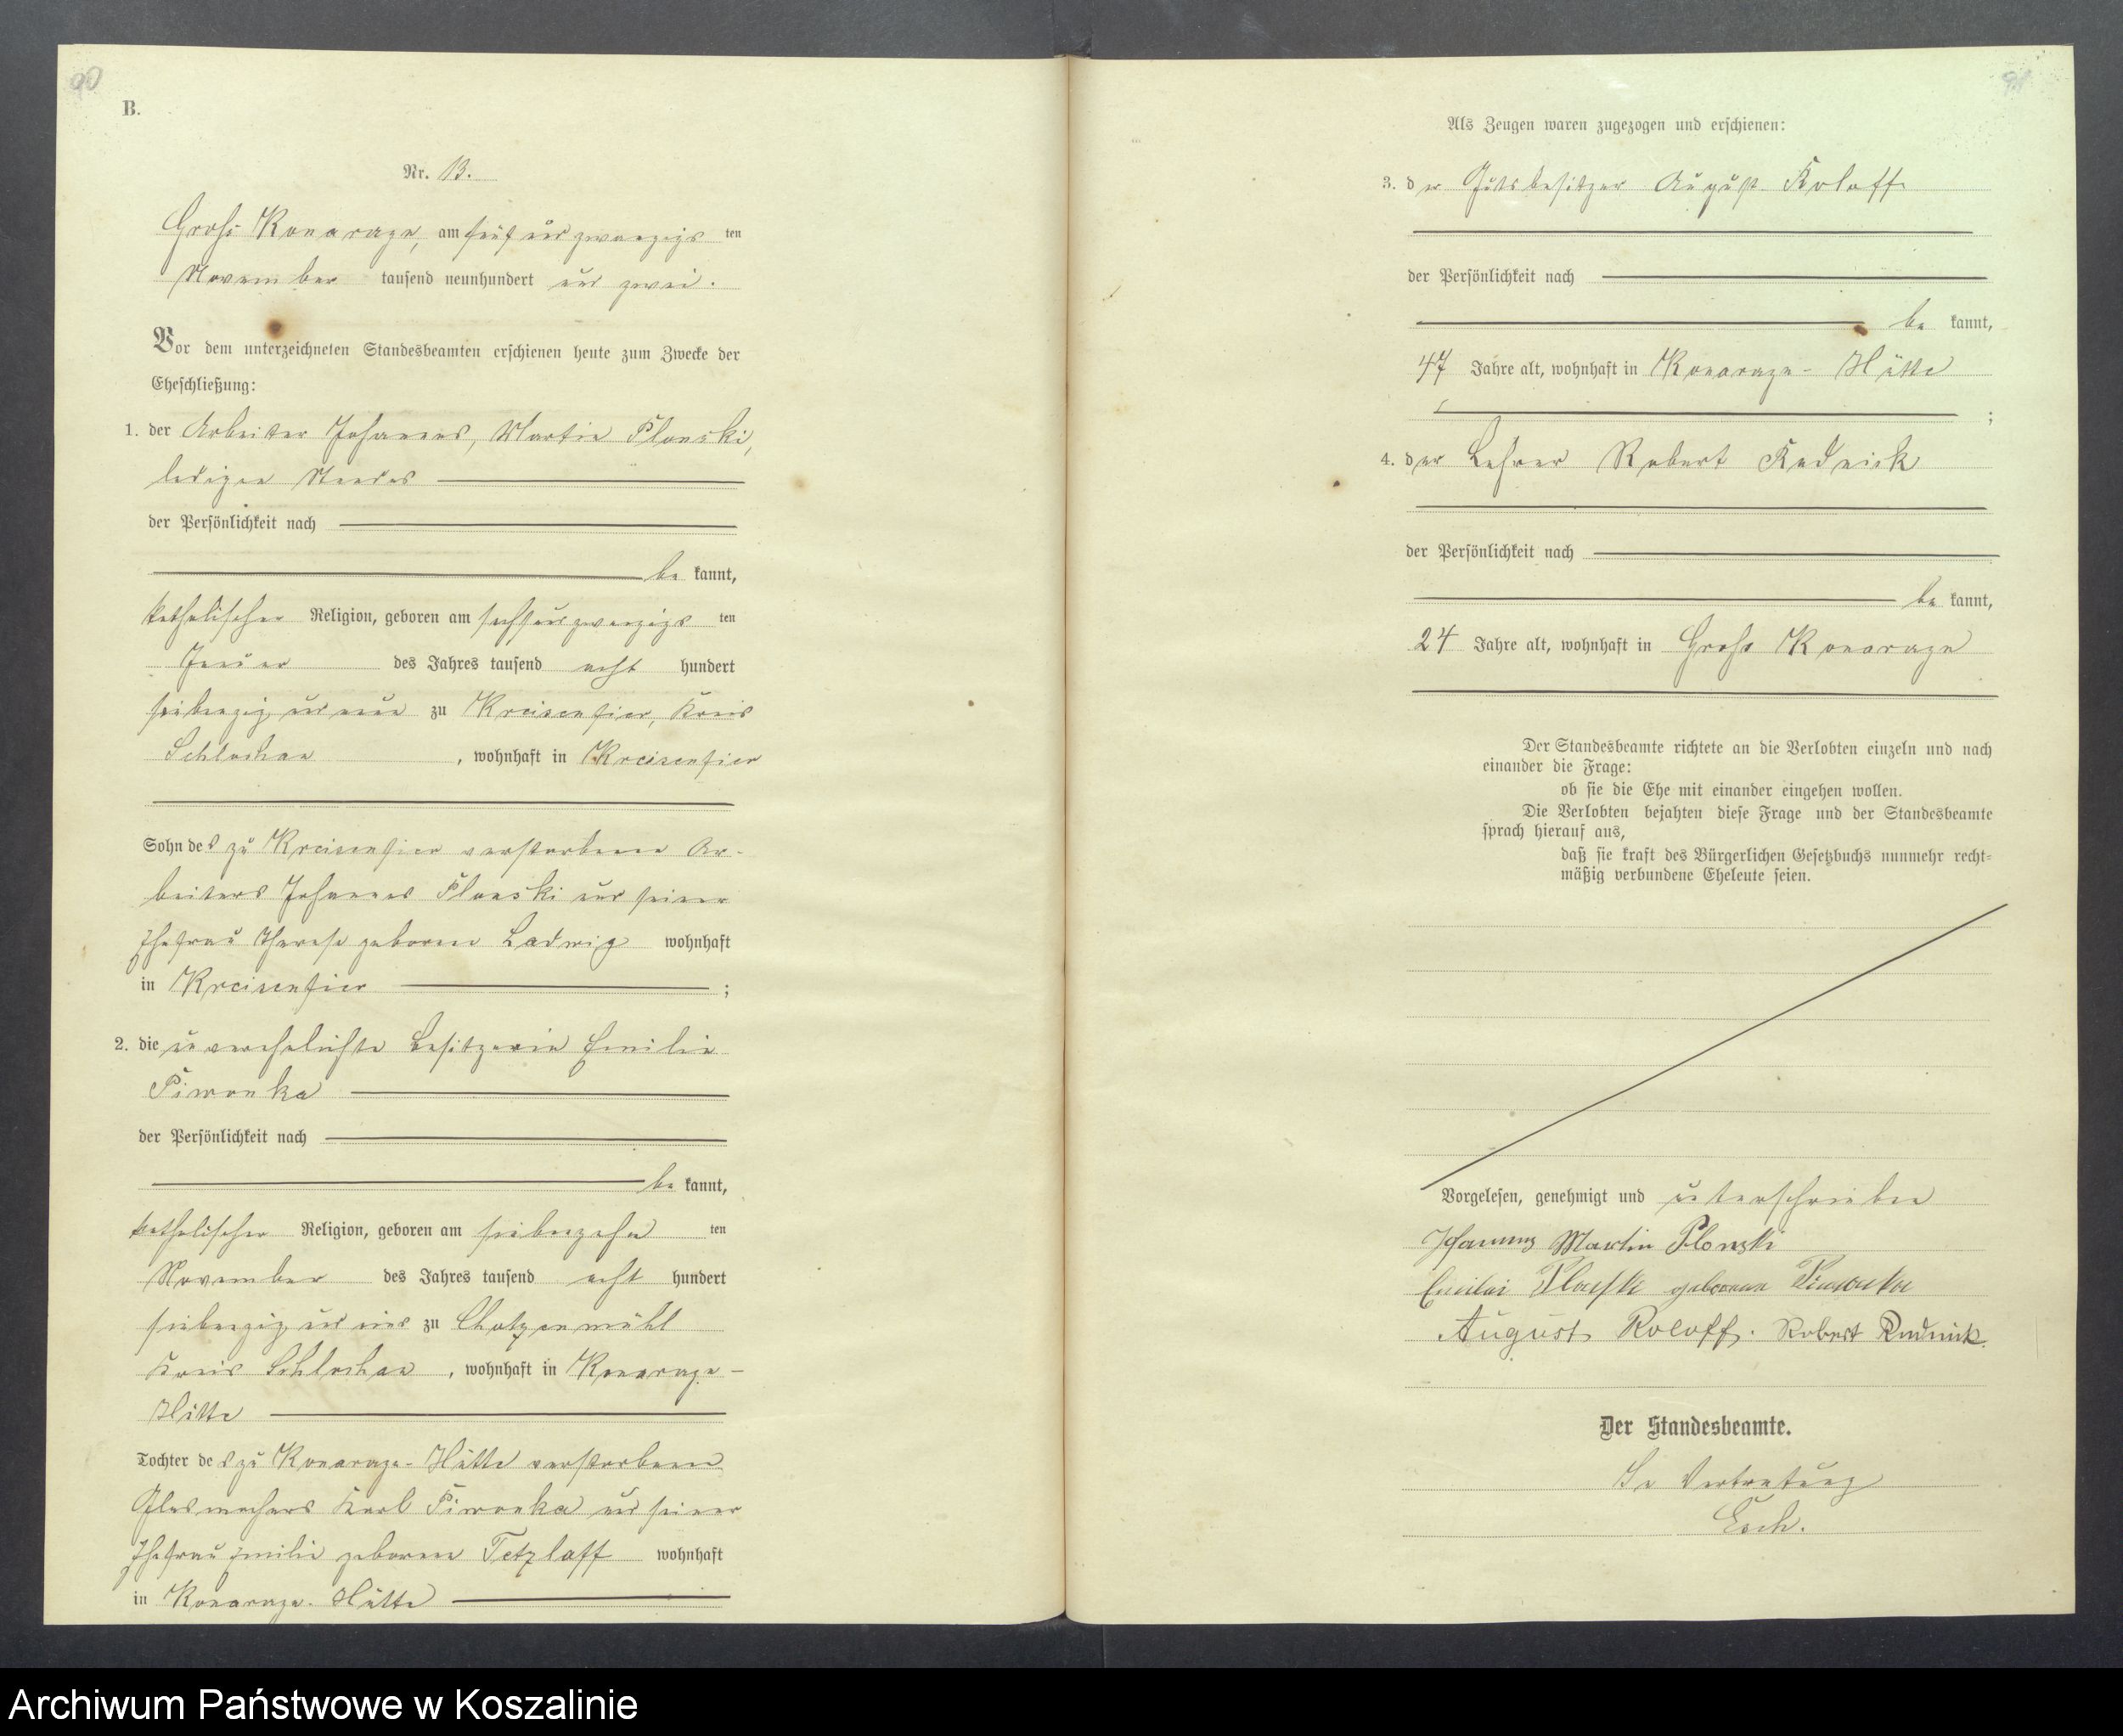 90
B.
Nr. 13.
Groß Konarczyn, am fünf und zwanzigs ten
November tausend neunhundert und zwei.
Vor dem unterzeichneten Standesbeamten erschienen heute zum Zwecke der
Eheschließung:
1. der Arbeiter Johannes, Martin Plonski,
ledigen Standes
der Persönlichkeit nach
be kannt,
katholischer Religion, geboren am sechsundzwanzigs ten
Januar des Jahres tausend acht hundert
siebenzig und neun zu Kreisenfier, Kreis
Schlochau, wohnhaft in Kreisenfier
Sohn des zu Kreisenfier verstorbenen Ar-
beiters Johannes Plonski und seiner
Ehefrau Therese geborene Ladwig wohnhaft
in Kreisenfier ;
2. die unverehelichte Besitzerin Emilie
Piwonka
der Persönlichkeit nach
be kannt,
katholischer Religion, geboren am siebenzehn ten
November des Jahres tausend acht hundert
siebenzig und eins zu Chotzenmühl
Kreis Schlochau, wohnhaft in
Hütte
Tochter des zu verstorbenen
Glasmachers Karl Piwonka und seiner
Ehefrau Emilie geborene Tetzlaff wohnhaft
in
91
Als Zeugen waren zugezogen und erschienen:
3. der Gutsbesitzer August Roloff
der Persönlichkeit nach
be kannt,
47 Jahre alt, wohnhaft in
;
4. der Lehrer Robert Rudnick
der Persönlichkeit nach
be kannt,
24 Jahre alt, wohnhaft in Groß Konarczyn
Der Standesbeamte richtete an die Verlobten einzeln und nach
einander die Frage:
ob sie die Ehe mit einander eingehen wollen.
Die Verlobten bejahten diese Frage und der Standesbeamte
sprach hierauf aus,
daß sie kraft des Bürgerlichen Gesetzbuchs nunmehr recht-
mäßig verbundene Eheleute seien.
Vorgelesen, genehmigt und unterschrieben
Johannes Martin Plonski
Emilie Plonski geborene Piwonka
August Roloff. Robert Rudnick.
Der Standesbeamte.
In Vertretung
Archiwum Państwowe w Koszalinie